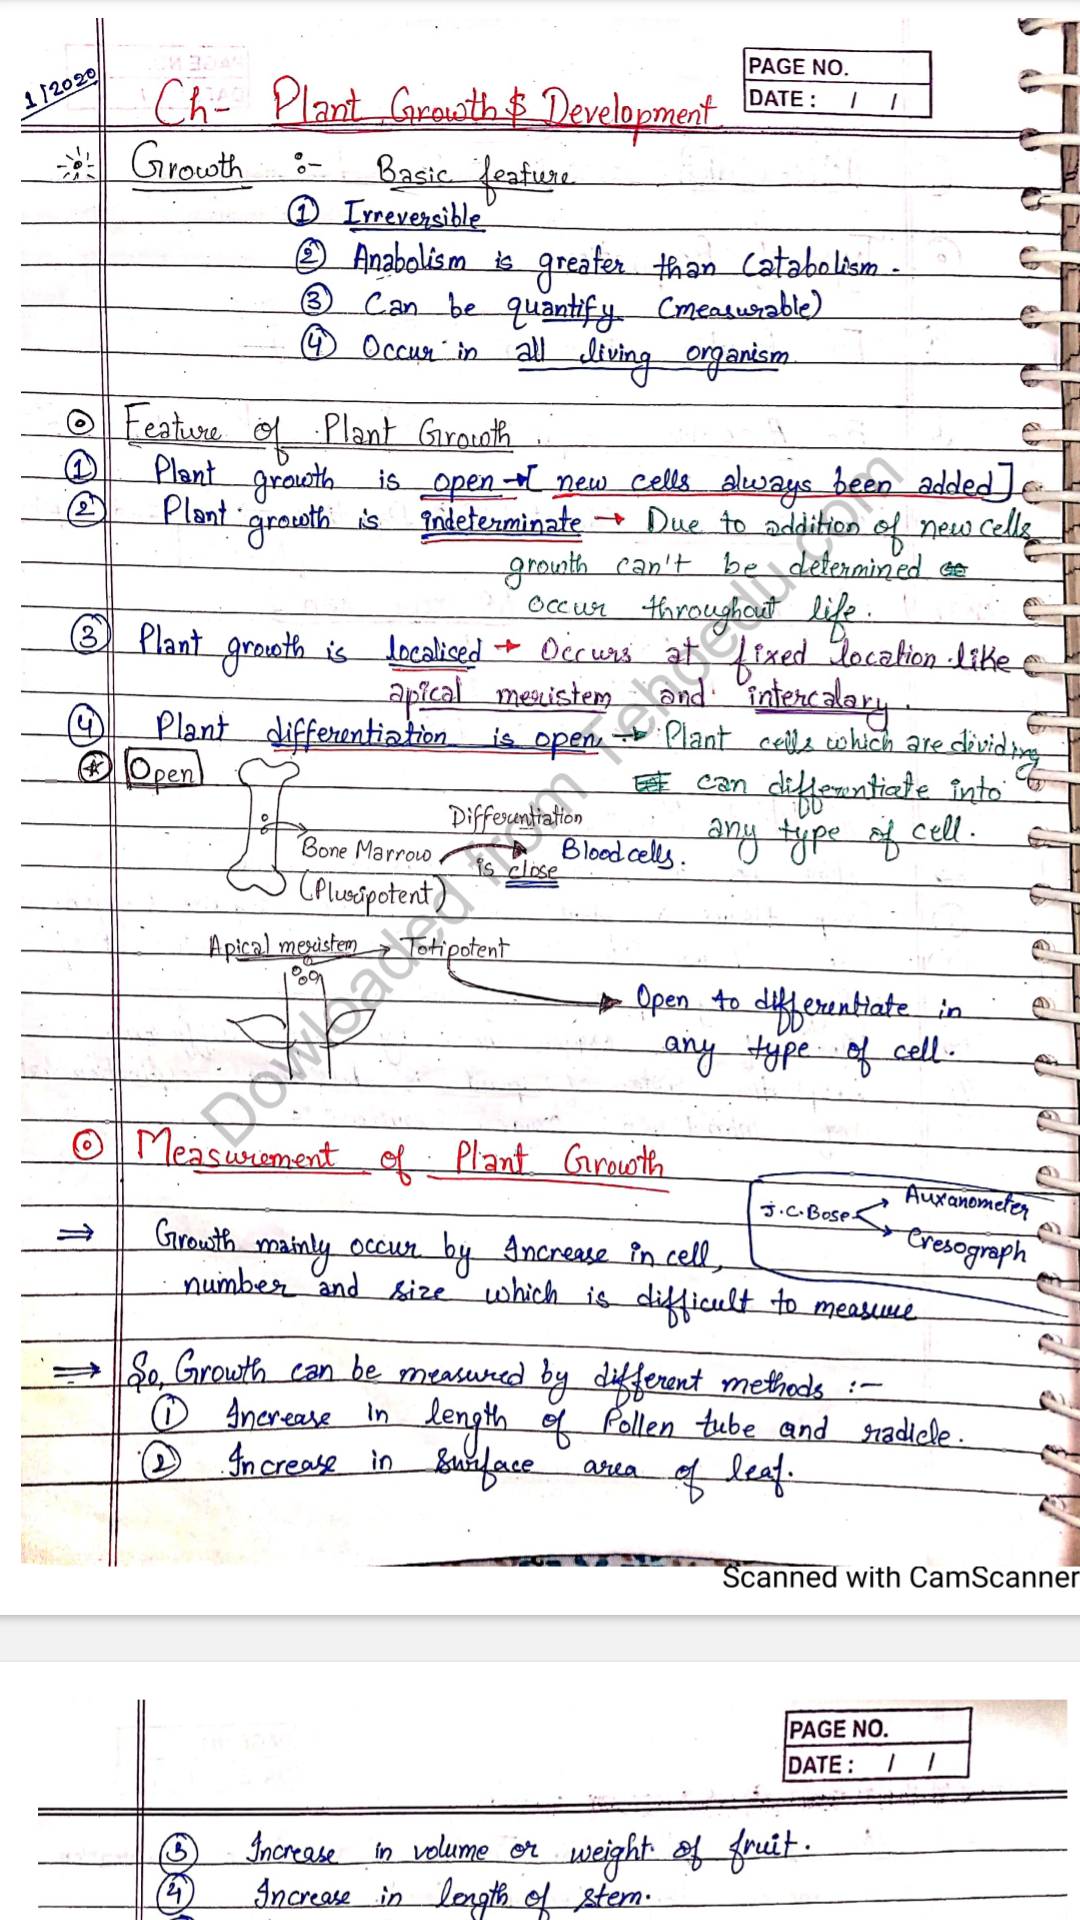 1/2020
PAGE NO.
DATE : / /
Ch- Plant Growth & Development
Growth :- Basic feature
① Irreversible
② Anabolism is greater than Catabolism.
③ Can be quantify (measurable)
④ Occur in all living organism
Feature of Plant Growth
① Plant growth is open → [new cells always been added]
② Plant growth is indeterminate → Due to addition of new cells
growth can't be determined
occur throughout life.
③ Plant growth is localised → Occurs at fixed location like
apical meristem and intercalary.
④ Plant differentiation is open → Plant cells which are dividing
can differentiate into
any type of cell.
Open
Bone Marrow
(Pluripotent)
Differentiation
is close
Blood cells.
Apical meristem → Totipotent
Open to differentiate in
any type of cell.
Measurement of Plant Growth
J.C.Bose
Auxanometer
Cresograph
⇒ Growth mainly occur by Increase in cell,
number and size which is difficult to measure
⇒ So, Growth can be measured by different methods :-
① Increase in length of Pollen tube and radicle.
② Increase in surface area of leaf.
Dowloaded from Tehoedu.com
Scanned with CamScanner
PAGE NO.
DATE : / /
③ Increase in volume or weight of fruit.
④ Increase in length of stem.